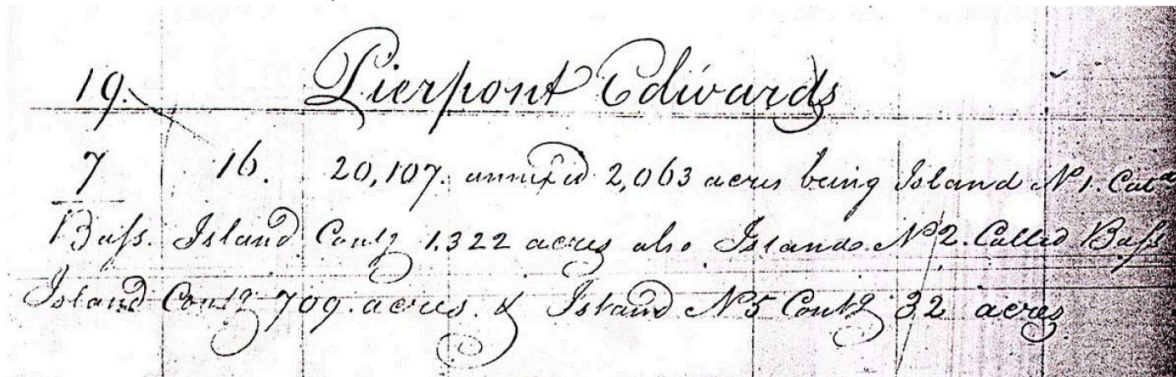 19. Pierpont Edwards
7 16. 20,107. annexed 2,063 acres being Island No 1. Calld
Bass. Island Contg 1.322 acres also Island. No 2. Called Bass
Island Contg 709. acres. & Island No 5 Contg 32 acres